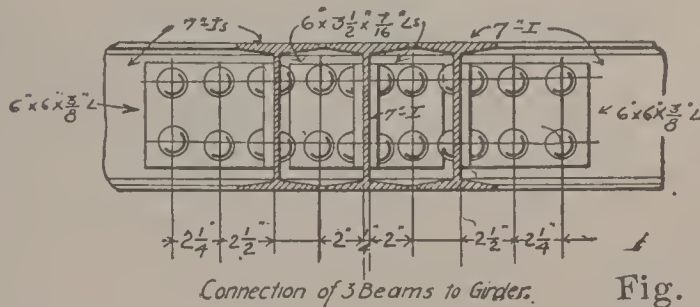 7" Is
6" x 3 1/2" x 7/16" Ls
7" I
6" x 6" x 3/8" L
7" I
6" x 6" x 3/8" L
2 1/4" 2 1/2" 2" 1/4" 2" 2 1/2" 2 1/4"
Connection of 3 Beams to Girder.
Fig.